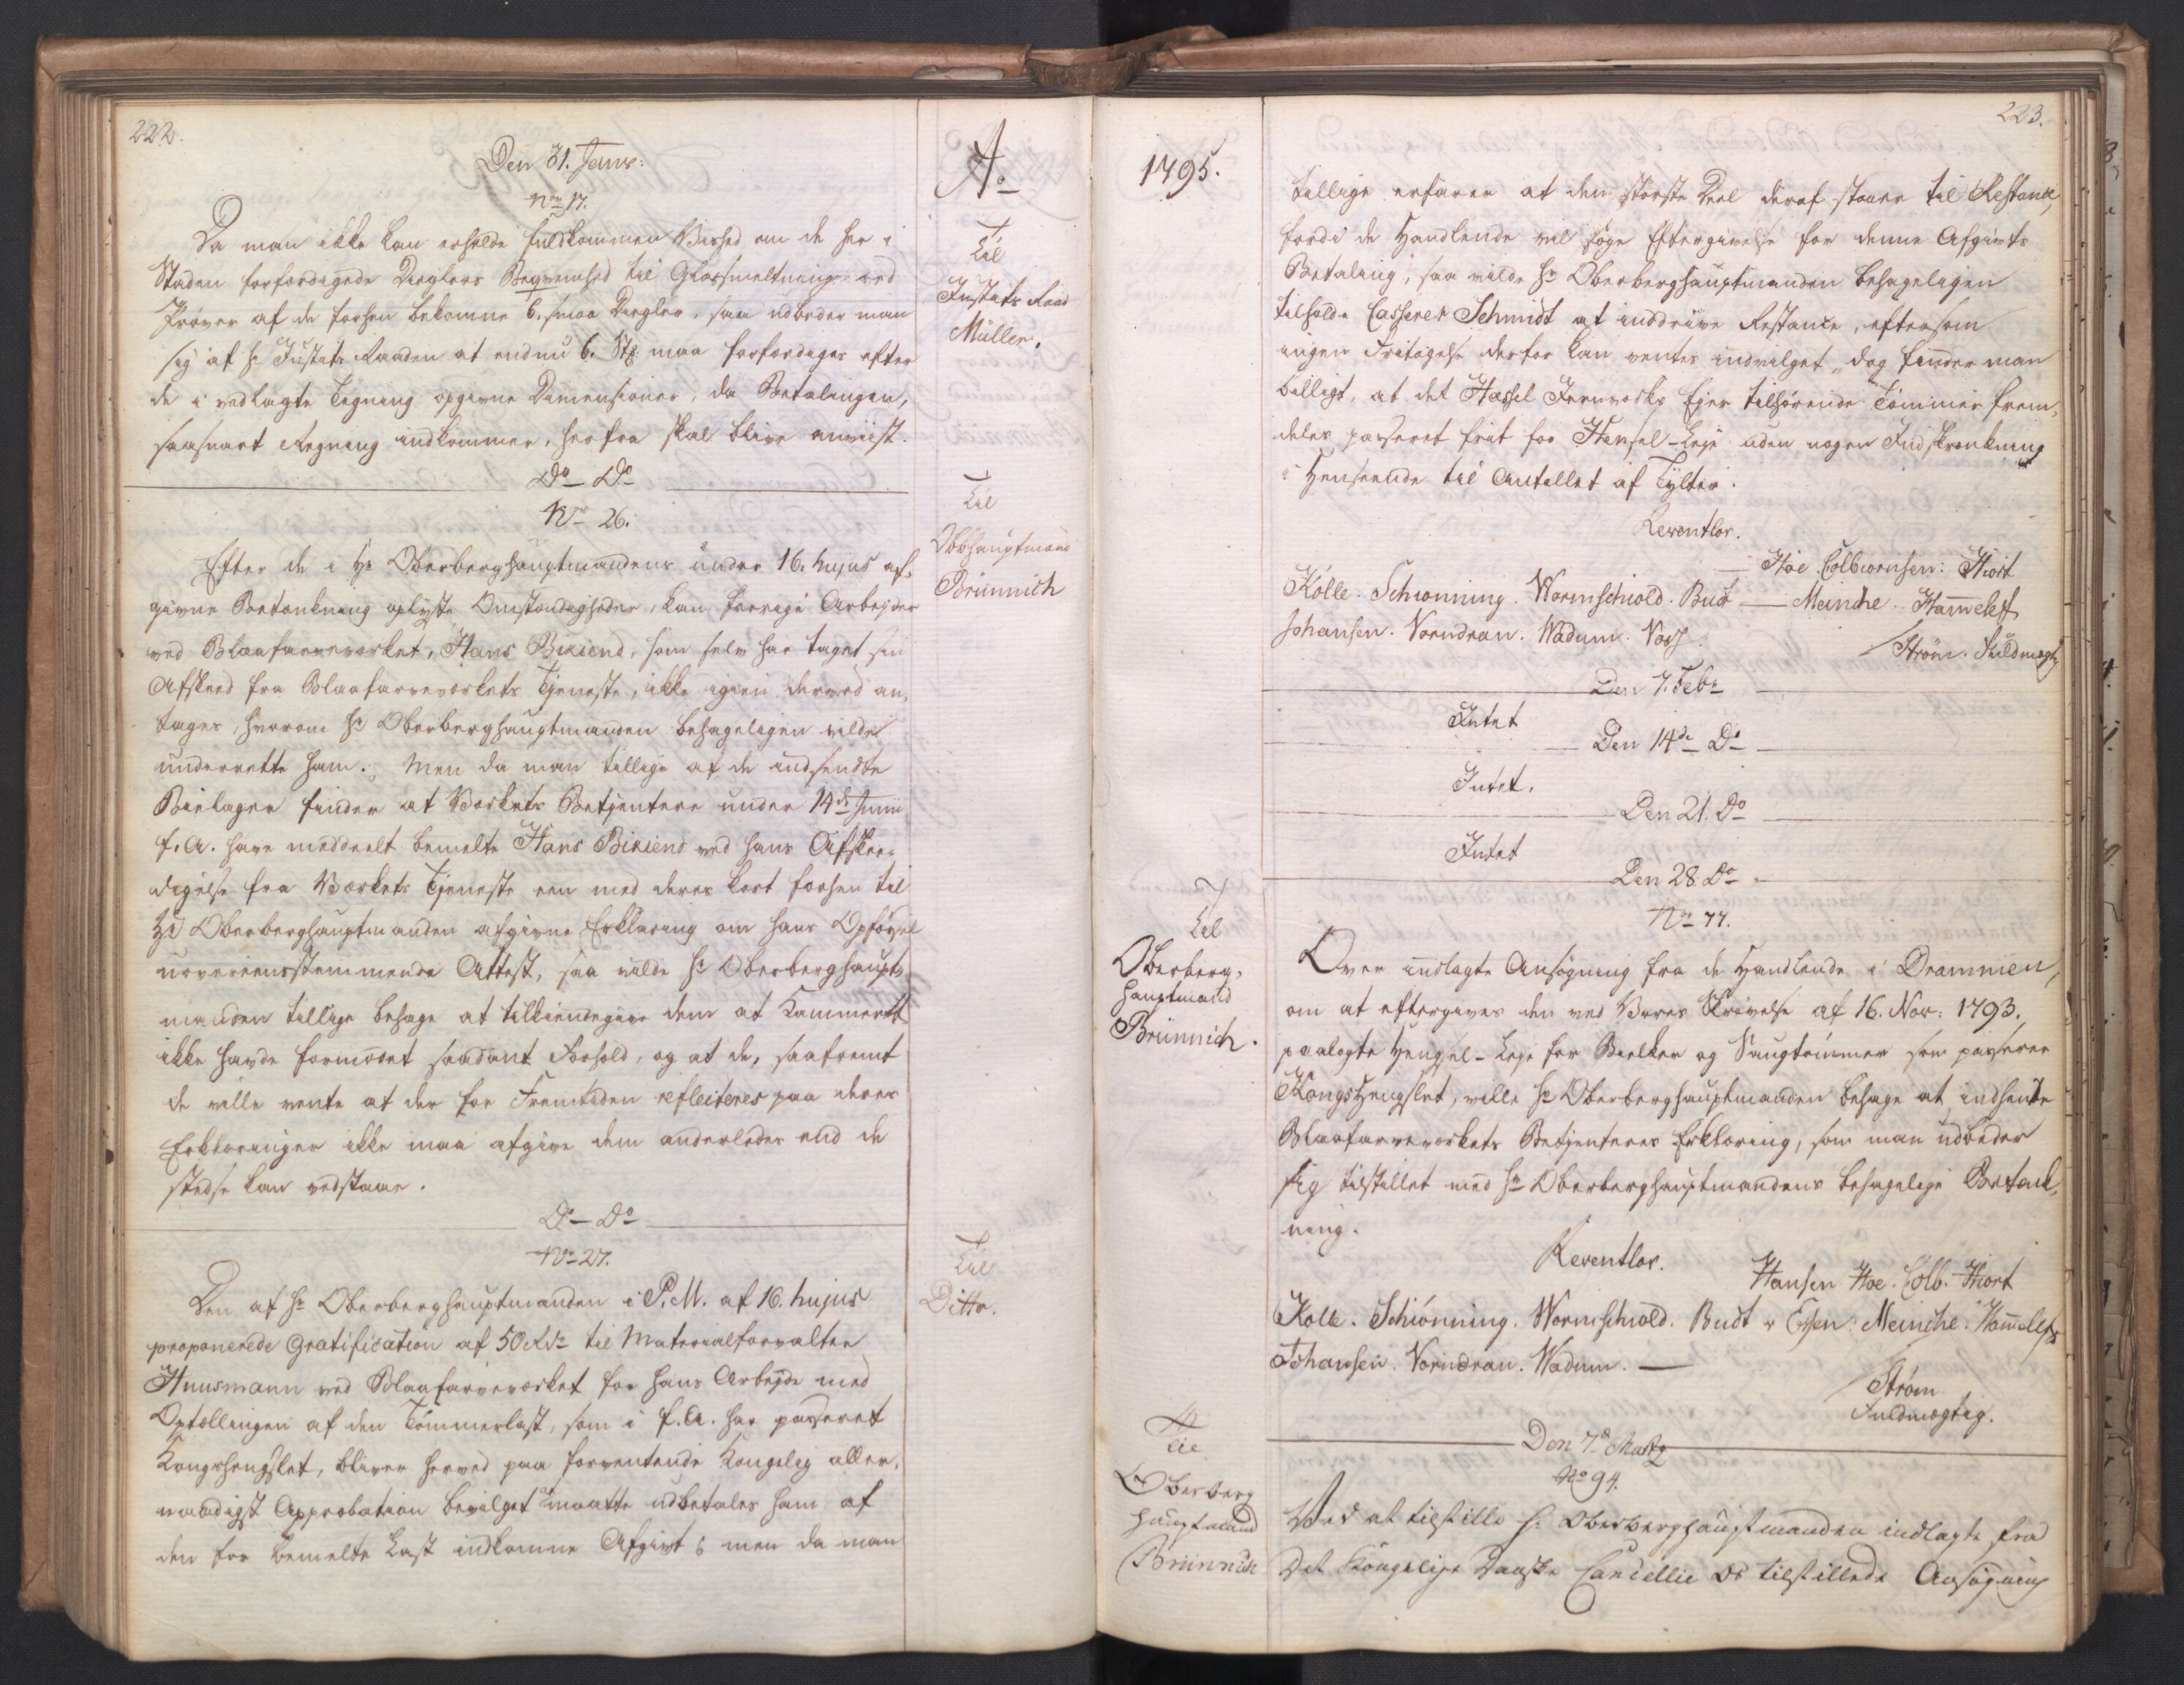 222.
Den 31. Janr:
No 17.
Da man ikke kan erholde fuldkommen Vished om de her i
Staden forfærdigede Dieglers Beqvemhed til Glassmeltning ved
Prøver af de forhen bekomne 6. smaa Diegler, saa udbeder man
sig af Hr Justits Raaden at endnu 6. Stk maa forfærdiges efter
de i vedlagte Tegning opgivne Dimensioner, da Betalingen,
saasnart Regning indkommer, herfra skal blive anviist.
Do Do
No 26.
Efter de i Hr Oberberghauptmandens under 16. hujus af-
givne Betænkning oplyste Omstændigheder, kan forrige Arbejder
ved Blaafarveværket, Hans Biriend, som selv har taget sin
Afskeed fra Blaafarveværkets Tjeneste, ikke igien derved an-
tages, hvorom Hr Oberberghauptmanden behageligen vilde
underrette ham. Men da man tillige af de indsendte
Bielager finder at Værkets Betjentere under 14de Junii
f. A. have meddeelt bemelte Hans Biriend ved hans Afskee-
digelse fra Værkets Tjeneste een med deres kort forhen til
Hr Oberberghauptmanden afgivne Erklæring om hans Opførsel
uovereensstemmende Attest, saa vilde Hr Oberberghaupt-
manden tillige behage at tilkiendegive dem at Kammeret
ikke havde formodet saadant Forhold, og at de, saafremt
de ville vente at der for Fremtiden reflecteres paa deres
Erklæringer ikke maa afgive dem anderledes end de
stedse kan vedstaae.
Do Do
No 27.
Den af Hr Oberberghauptmanden i P. M. af 16. hujus
proponerede Gratification af 50 Rdr til Materialforvalter
Huusmann ved Blaafarveværket for hans Arbejde med
Optællingen af den Tømmerlast, som i f. A. har passeret
Kongshengslet, bliver herved paa forventende Kongelig aller-
naadigst Approbation bevilget at maatte udbetales ham af
den for bemelte Last indkomne Afgivt; men da man
Ao
Til
Justits Raad
Müller.
Til
Obhauptmand
Brünnich
Til
Ditto.
1795.
Til
Oberberg-
hauptmand
Brünnich.
Til
Oberberg
hauptmand
Brünnich
223.
tillige erfarer at den største Deel deraf staaer til Restance,
fordi de Handlende vil søge Eftergivelse for denne Afgivts
Betaling, saa vilde Hr Oberberghauptmanden behageligen
tilholde Casserer Schmidt at inddrive Restance, eftersom
ingen Fritagelse derfor kan ventes indvilget, dog finder man
billigt, at det Hassel Jernværks Ejer tilhørende Tømmer frem-
deles passeret frit for Hensel-Leje uden nogen Indskrænkning
i Henseende til Antallet af Tylter.
Reventlov.
Hoe. Colbiørnsen: Hiort
Kølle. Schiønning. Wormschiold. Bud — Meinche. Hammeleff
Johansen. Vorndran. Wadum. Voss.
Strøm. Fuldmægtig
Den 7. Febr
Intet
Den 14de Do
Intet.
Den 21. Do
Intet
Den 28. Do
No 77.
Over indlagte Ansøgning fra de Handlende i Drammen,
om at eftergives den ved Vores Skrivelse af 16. Nov: 1793.
paalagte Hengsel-Leje for Bielker og Saugtømmer som passerer
Kongshengslet, ville Hr Oberberghauptmanden behage at indhente
Blaafarveværkets Betjenteres Erklæring, som man udbeder
sig tilstillet med Hr Oberberghauptmandens behagelige Betænk-
ning.
Reventlov.
Hansen Hoe. Colb. Hiort
Kølle. Schiønning. Wormschiold. Budt v Essen: Meinche. Hammeleff
Johansen. Vorndran. Wadum. —
Strøm
Fuldmægtig.
Den 7de Martz
No 94.
Ved at tilstille Hr Oberberghauptmanden indlagte fra
Det Kongelige Danske Cancellie os tilstillede Ansøgning